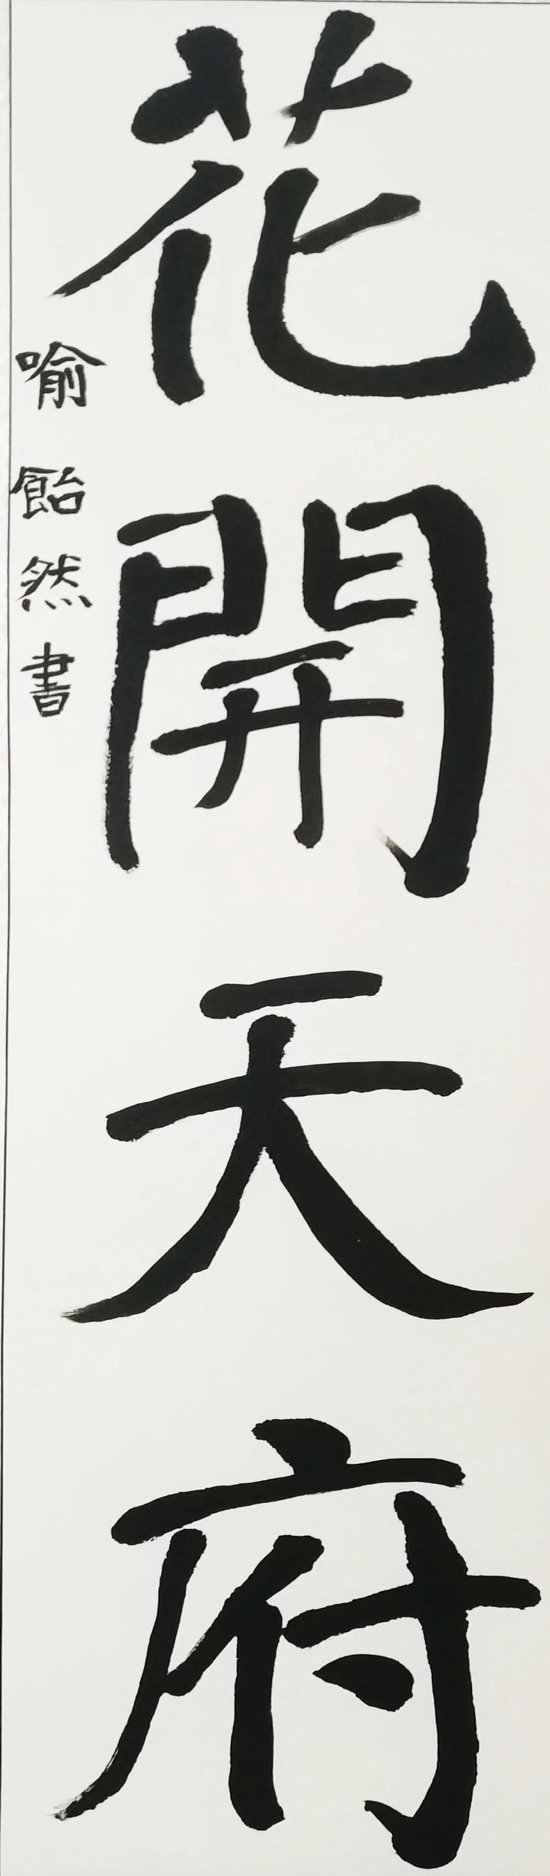 花開天府
喻飴然書